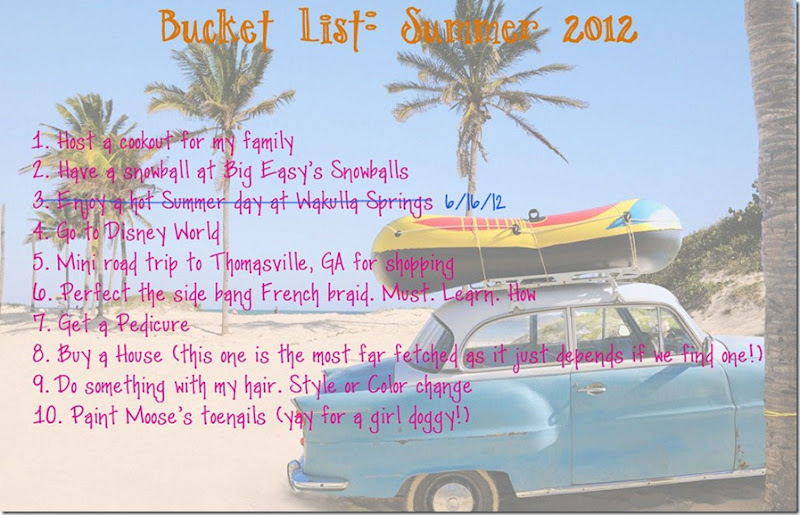 Bucket List: Summer 2012
1. Host a cookout for my family
2. Have a snowball at Big Easy's Snowballs
3. Enjoy a hot Summer day at Wakulla Springs 6/16/12
4. Go to Disney World
5. Mini road trip to Thomasville, GA for shopping
6. Perfect the side bang French braid. Must. Learn. How
7. Get a Pedicure
8. Buy a House (this one is the most far fetched as it just depends if we find one!)
9. Do something with my hair. Style or Color change
10. Paint Moose's toenails (yay for a girl doggy!)